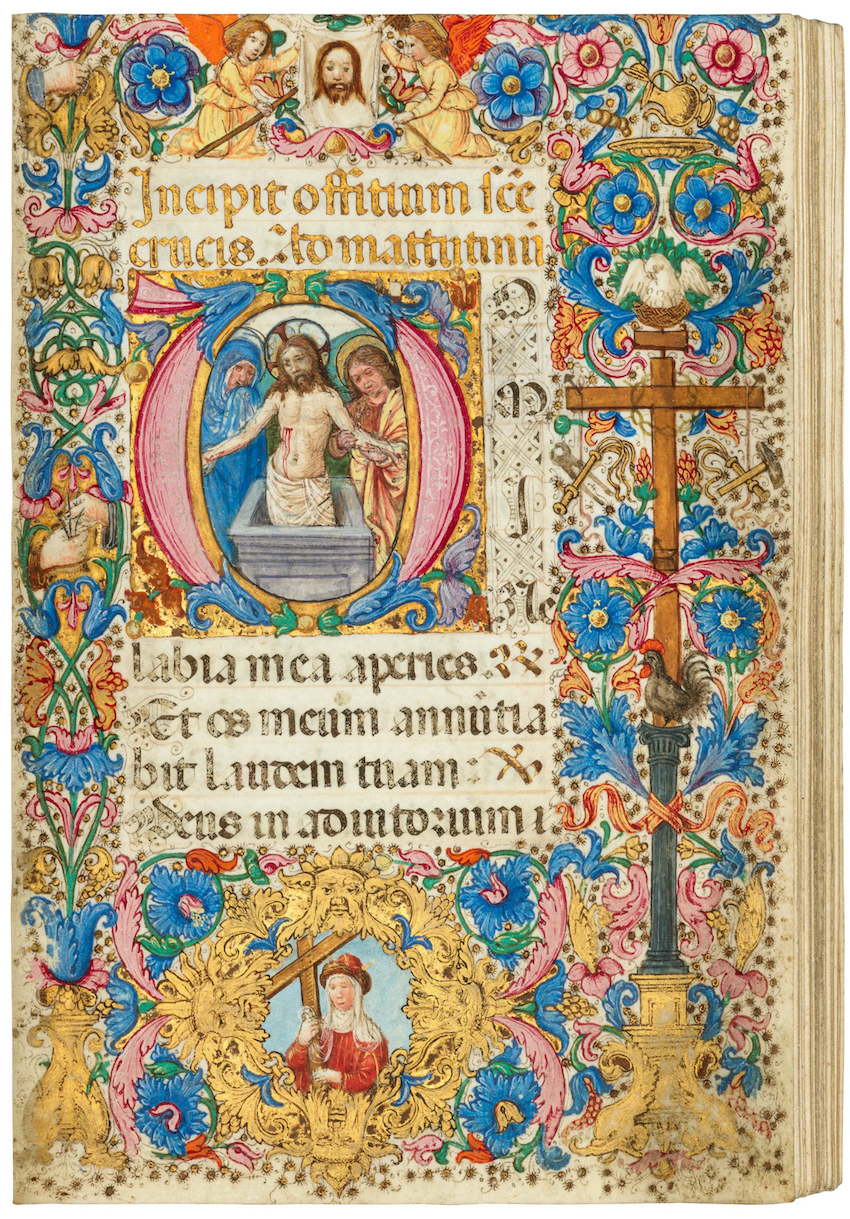 Incipit offitium sc̄e
crucis. Ad mattutinū
D O
M
I
Ne
labia mea aperies.
Et os meum annūtia
bit laudem tuam:
Deus in adiutorium i